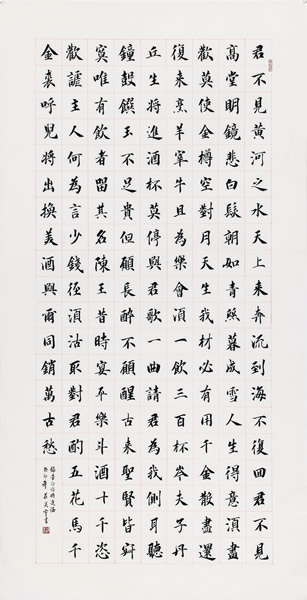 君不見黃河之水天上来奔流到海不復回君不見
高堂明鏡悲白髮朝如青絲暮成雪人生得意須盡
歡莫使金樽空對月天生我材必有用千金散盡還
復来烹羊宰牛且為樂會須一飲三百杯岑夫子丹
丘生将進酒杯莫停與君歌一曲請君為我側耳聽
鐘鼓饌玉不足貴但願長醉不願醒古来聖賢皆寂
寞唯有飲者留其名陳王昔時宴平樂斗酒十千恣
歡謔主人何為言少錢徑須沽取對君酌五花馬千
金裘呼兒将出換美酒與爾同銷萬古愁
錄李白詩將進酒